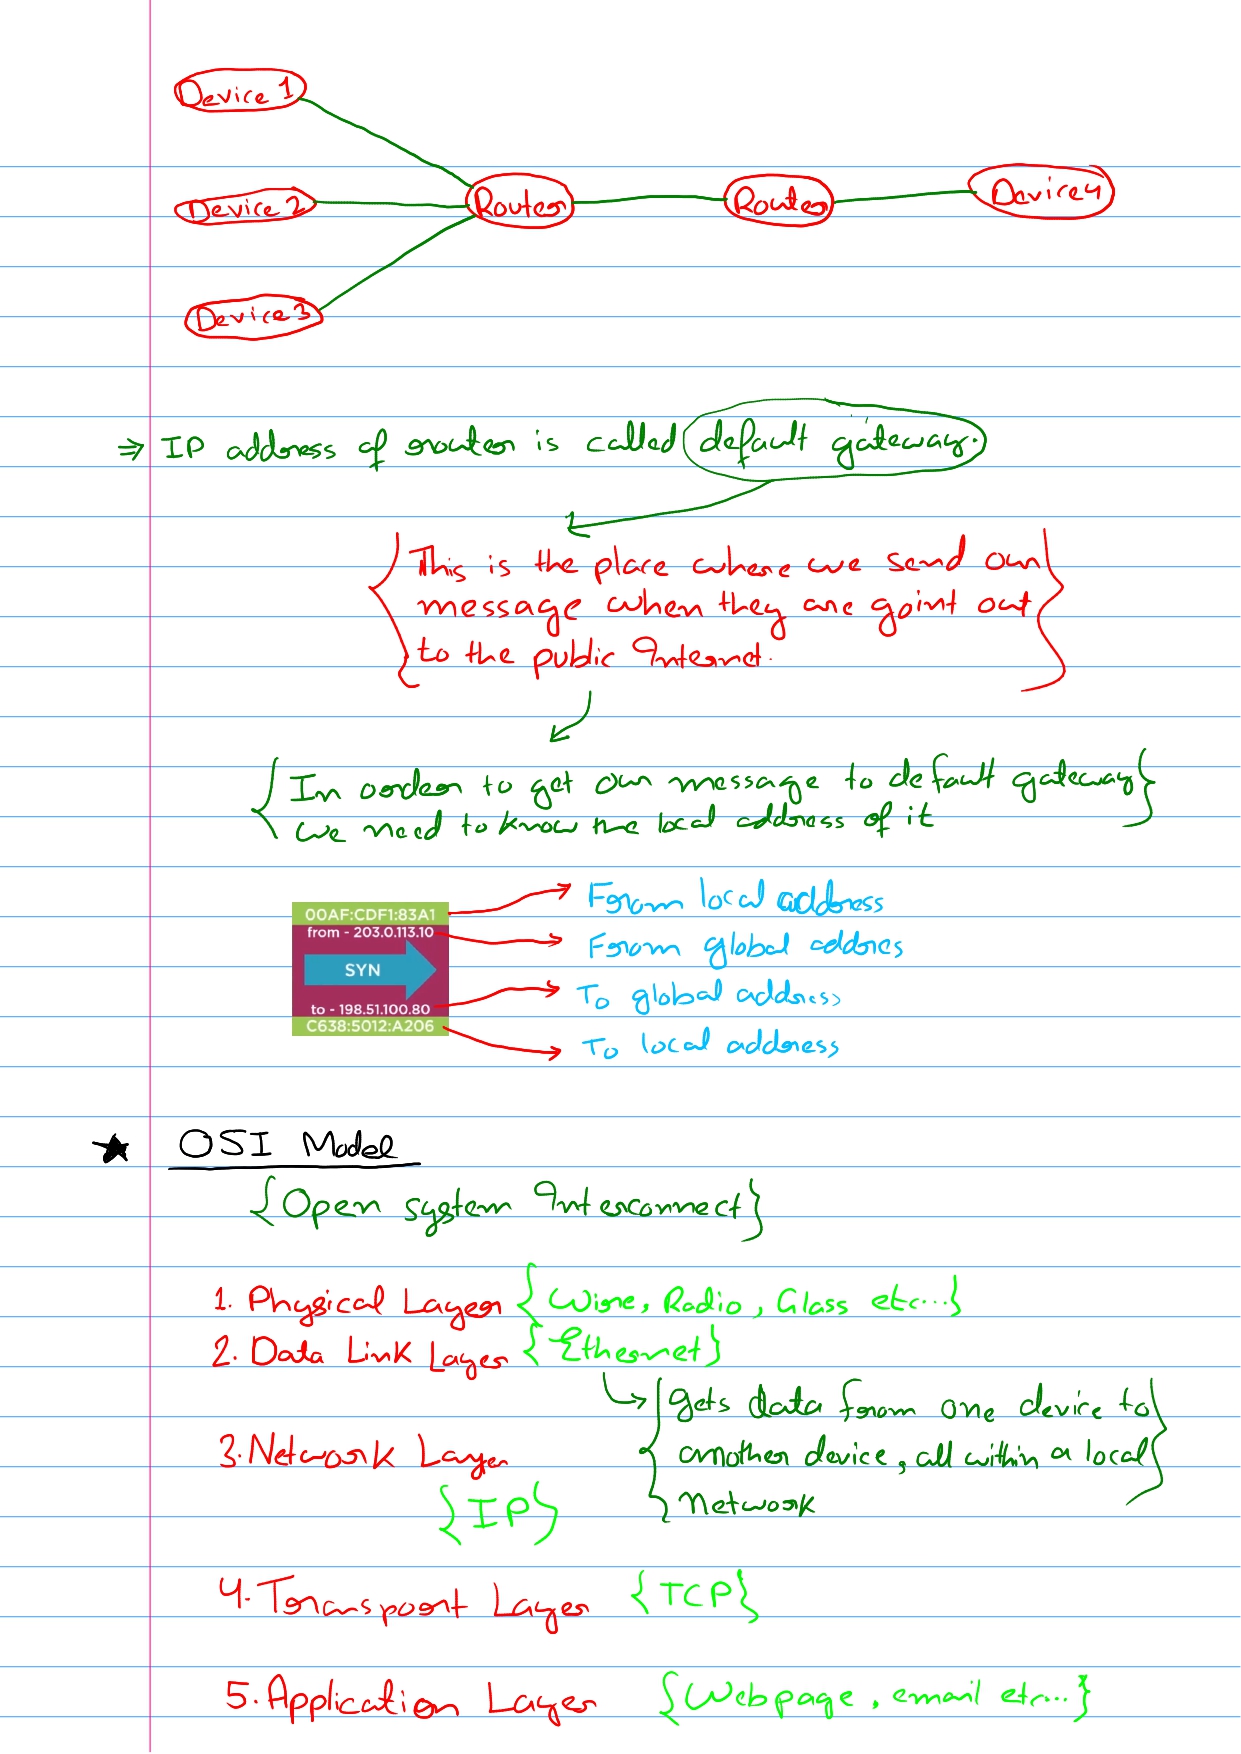 Device 1
Device 2
Router
Router
Device 4
Device 3
⇒ IP address of router is called default gateway.
{ This is the place where we send our
message when they are goint out
to the public Internet. }
{ In order to get our message to default gateway
we need to know the local address of it }
00AF:CDF1:83A1
from - 203.0.113.10
SYN
to - 198.51.100.80
C638:5012:A206
From local address
From global addres
To global address
To local address
★ OSI Model
{Open system Interconnect}
1. Physical Layer {Wire, Radio, Glass etc...}
2. Data Link Layer {Ethernet}
{ gets data from one device to
another device, all within a local
Network }
3. Network Layer
{IP}
4. Transport Layer {TCP}
5. Application Layer {Webpage, email etc...}